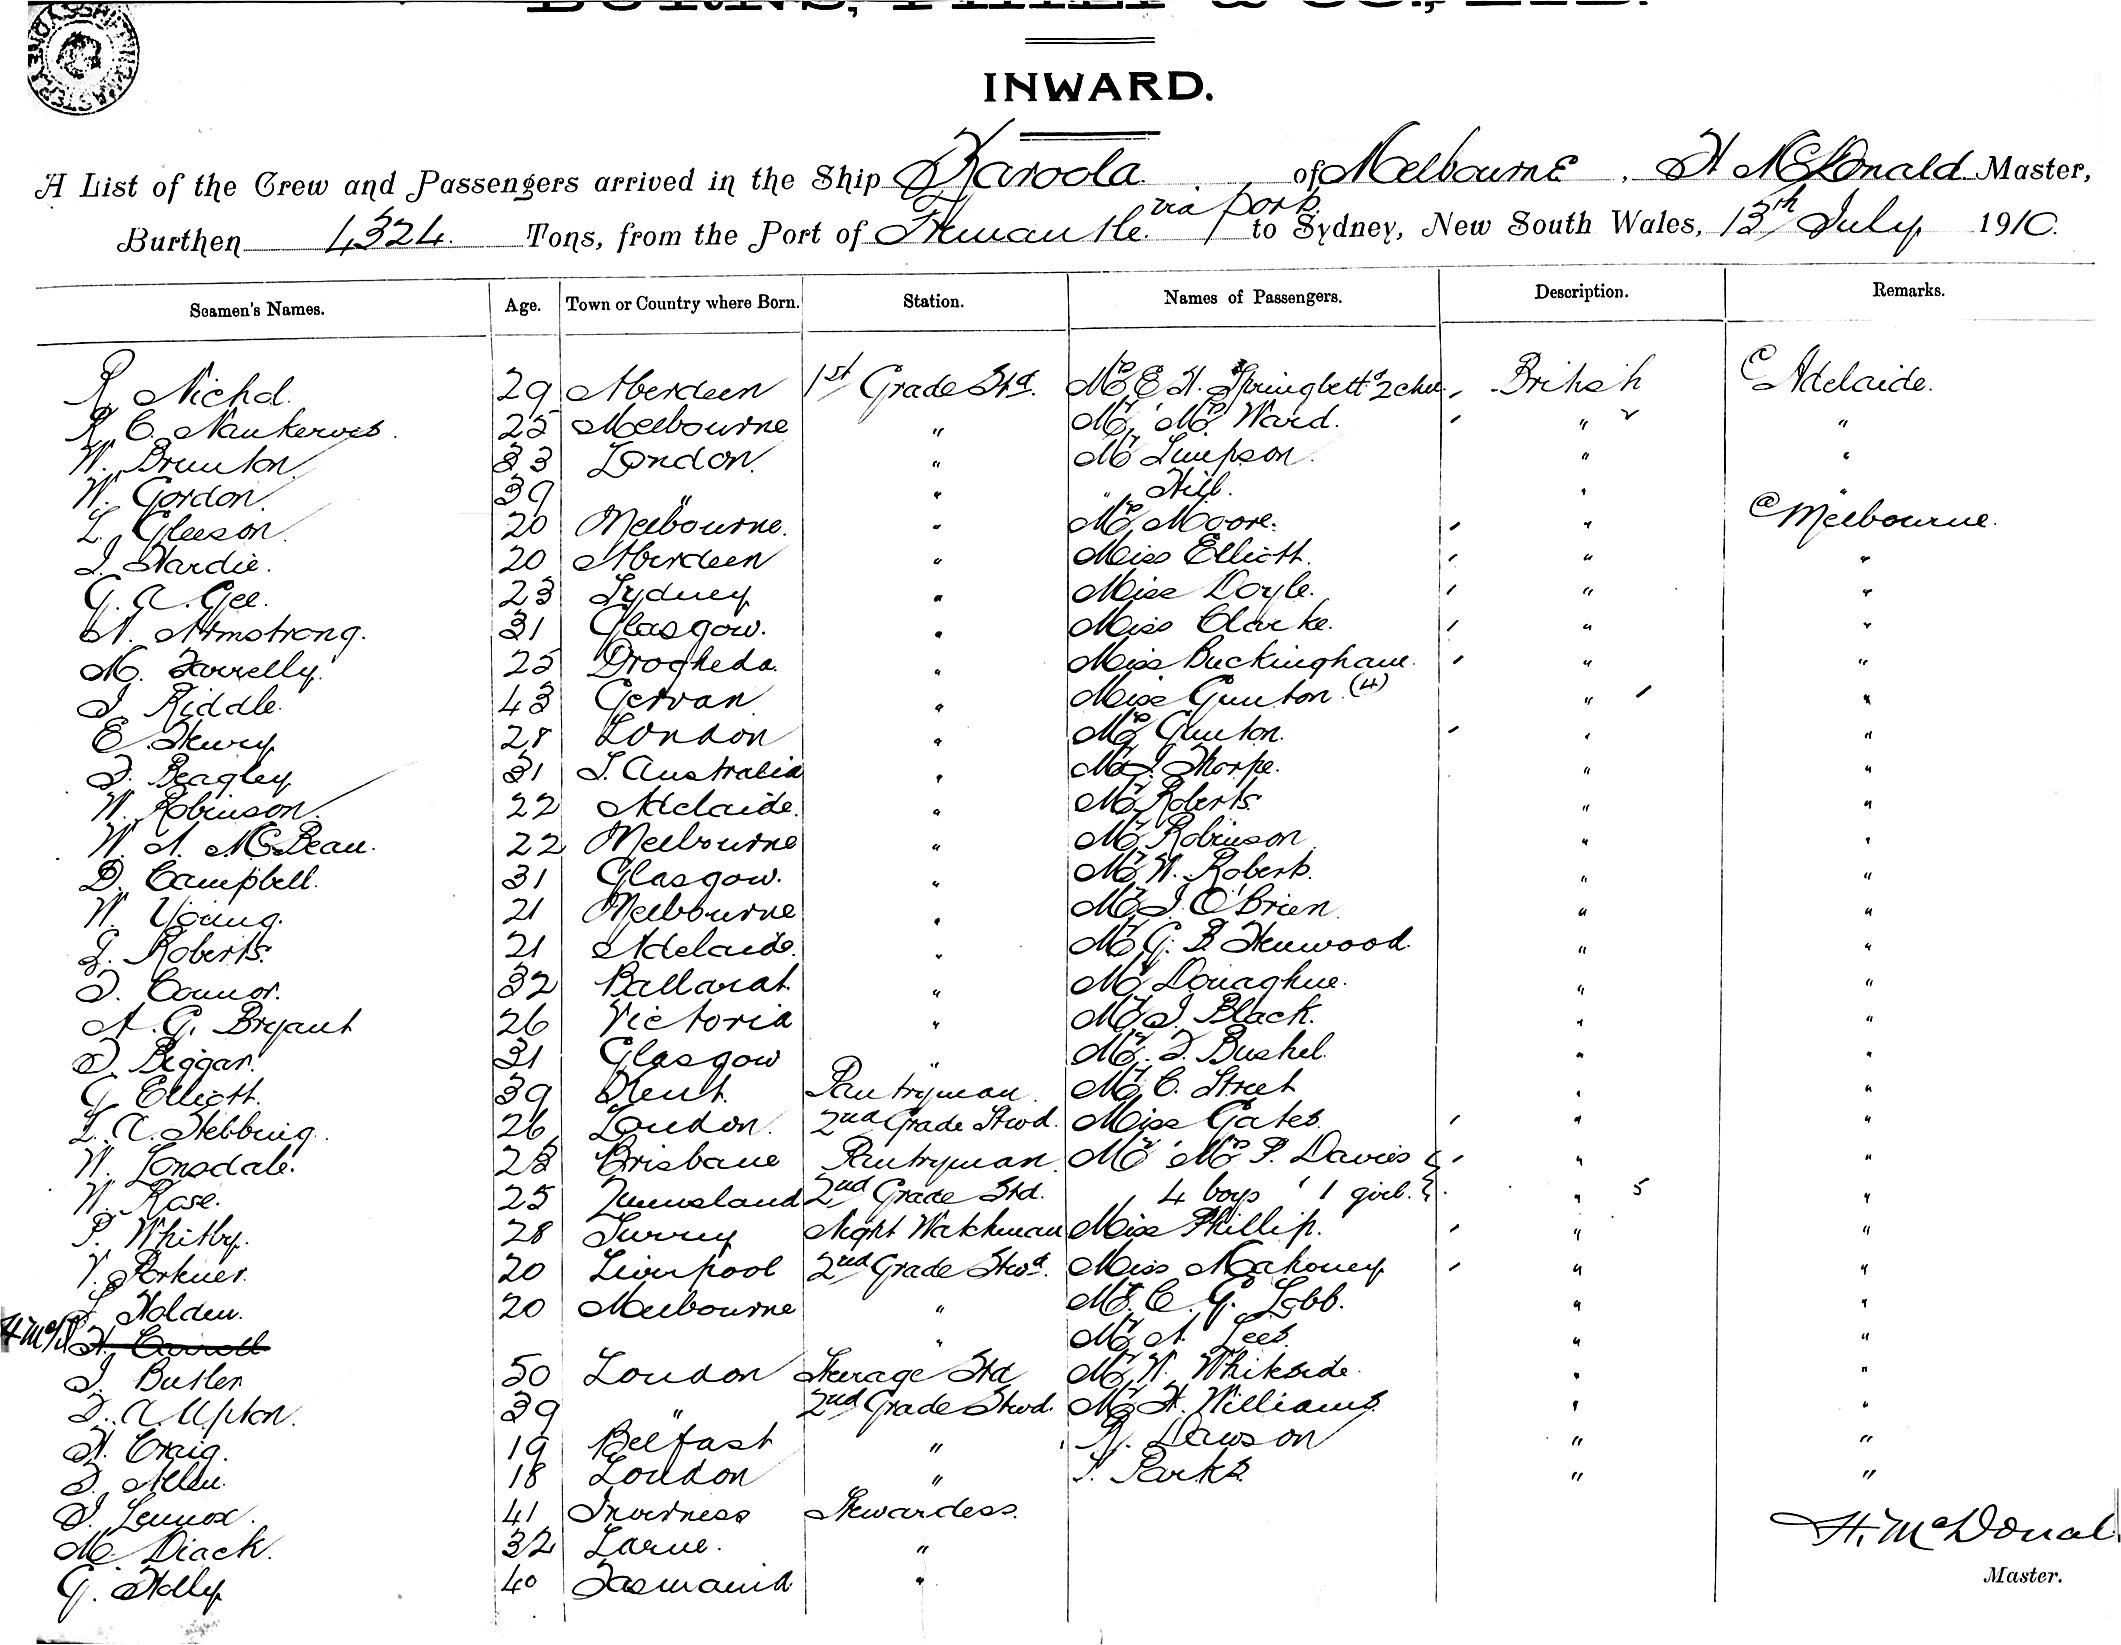 INWARD.
A List of the Crew and Passengers arrived in the Ship Karoola of Melbourne, H McDonald Master,
Burthen 4324 Tons, from the Port of Fremantle via ports to Sydney, New South Wales, 13th July 1910.
Seamen's Names. Age. Town or Country where Born. Station. Names of Passengers. Description. Remarks.
R Nichol. 29 Aberdeen 1st Grade Std. Mrs E H. Springbett & 2 chn British @ Adelaide.
R. C. Nankervis. 25 Melbourne " Mr & Mrs Ward. " "
W. Brunton 33 London. " Mr Simpson. " "
W. Gordon. 39 " " " Hill. " "
L. Gleeson. 20 Melbourne. " Mrs Moore. " @ Melbourne.
J. Hardie. 20 Aberdeen " Miss Elliott. " "
G. A. Gee. 23 Sydney " Miss Doyle. " "
A. Armstrong. 31 Glasgow. " Miss Clarke. " "
M. Farrelly. 25 Drogheda. " Miss Buckingham. " "
J. Riddle. 43 Gervan " Miss Gunton (4) " "
E. Henry 28 London " Mrs Gunton. " "
Beagley 31 S. Australia " Mr J. Thorpe. " "
W. Robinson. 22 Adelaide. " Mr Roberts. " "
W. A. McBean. 22 Melbourne " Mr Robinson " "
D. Campbell. 31 Glasgow. " Mr W. Roberts. " "
W. Young. 21 Melbourne " Mr J. O'Brien. " "
Roberts. 21 Adelaide. " Mr G. B. Henwood. " "
Connor. 32 Ballarat. " Mr Donaghue. " "
A. G. Bryant 26 Victoria " Mr J. Black. " "
Biggar. 31 Glasgow " Mr Bushel. " "
G. Elliott. 39 Kent. Pantryman. Mr C. Street " "
L. A. Stebbing. 26 London. 2nd Grade Stwd. Miss Gates. " "
W. Lonsdale. 28 Brisbane Pantryman. Mr & Mrs P. Davies " "
W. Rose. 25 Queensland 2nd Grade Std. 4 boys & 1 girl. " 5 "
P. Whitby. 28 Surrey Night Watchman Miss Phillip. " "
V. 20 Liverpool 2nd Grade Stwd. Miss Mahoney " "
Holden. 20 Melbourne " Mr. C. G. Lobb. " "
H McD H. Carroll " Mr A. Lees. " "
J. Butler 50 London Steerage Std Mr W. Whiteside. " "
A. Upton. 39 " 2nd Grade Stwd. Mr H. Williams. " "
H. Craig. 19 Belfast " Dawson " "
Allen. 18 London " Parks. " "
J. Lennox. 41 Inverness Stewardess.
M. Diack. 32 Larne. "
G. Holly 40 Tasmania "
H. McDonal
Master.